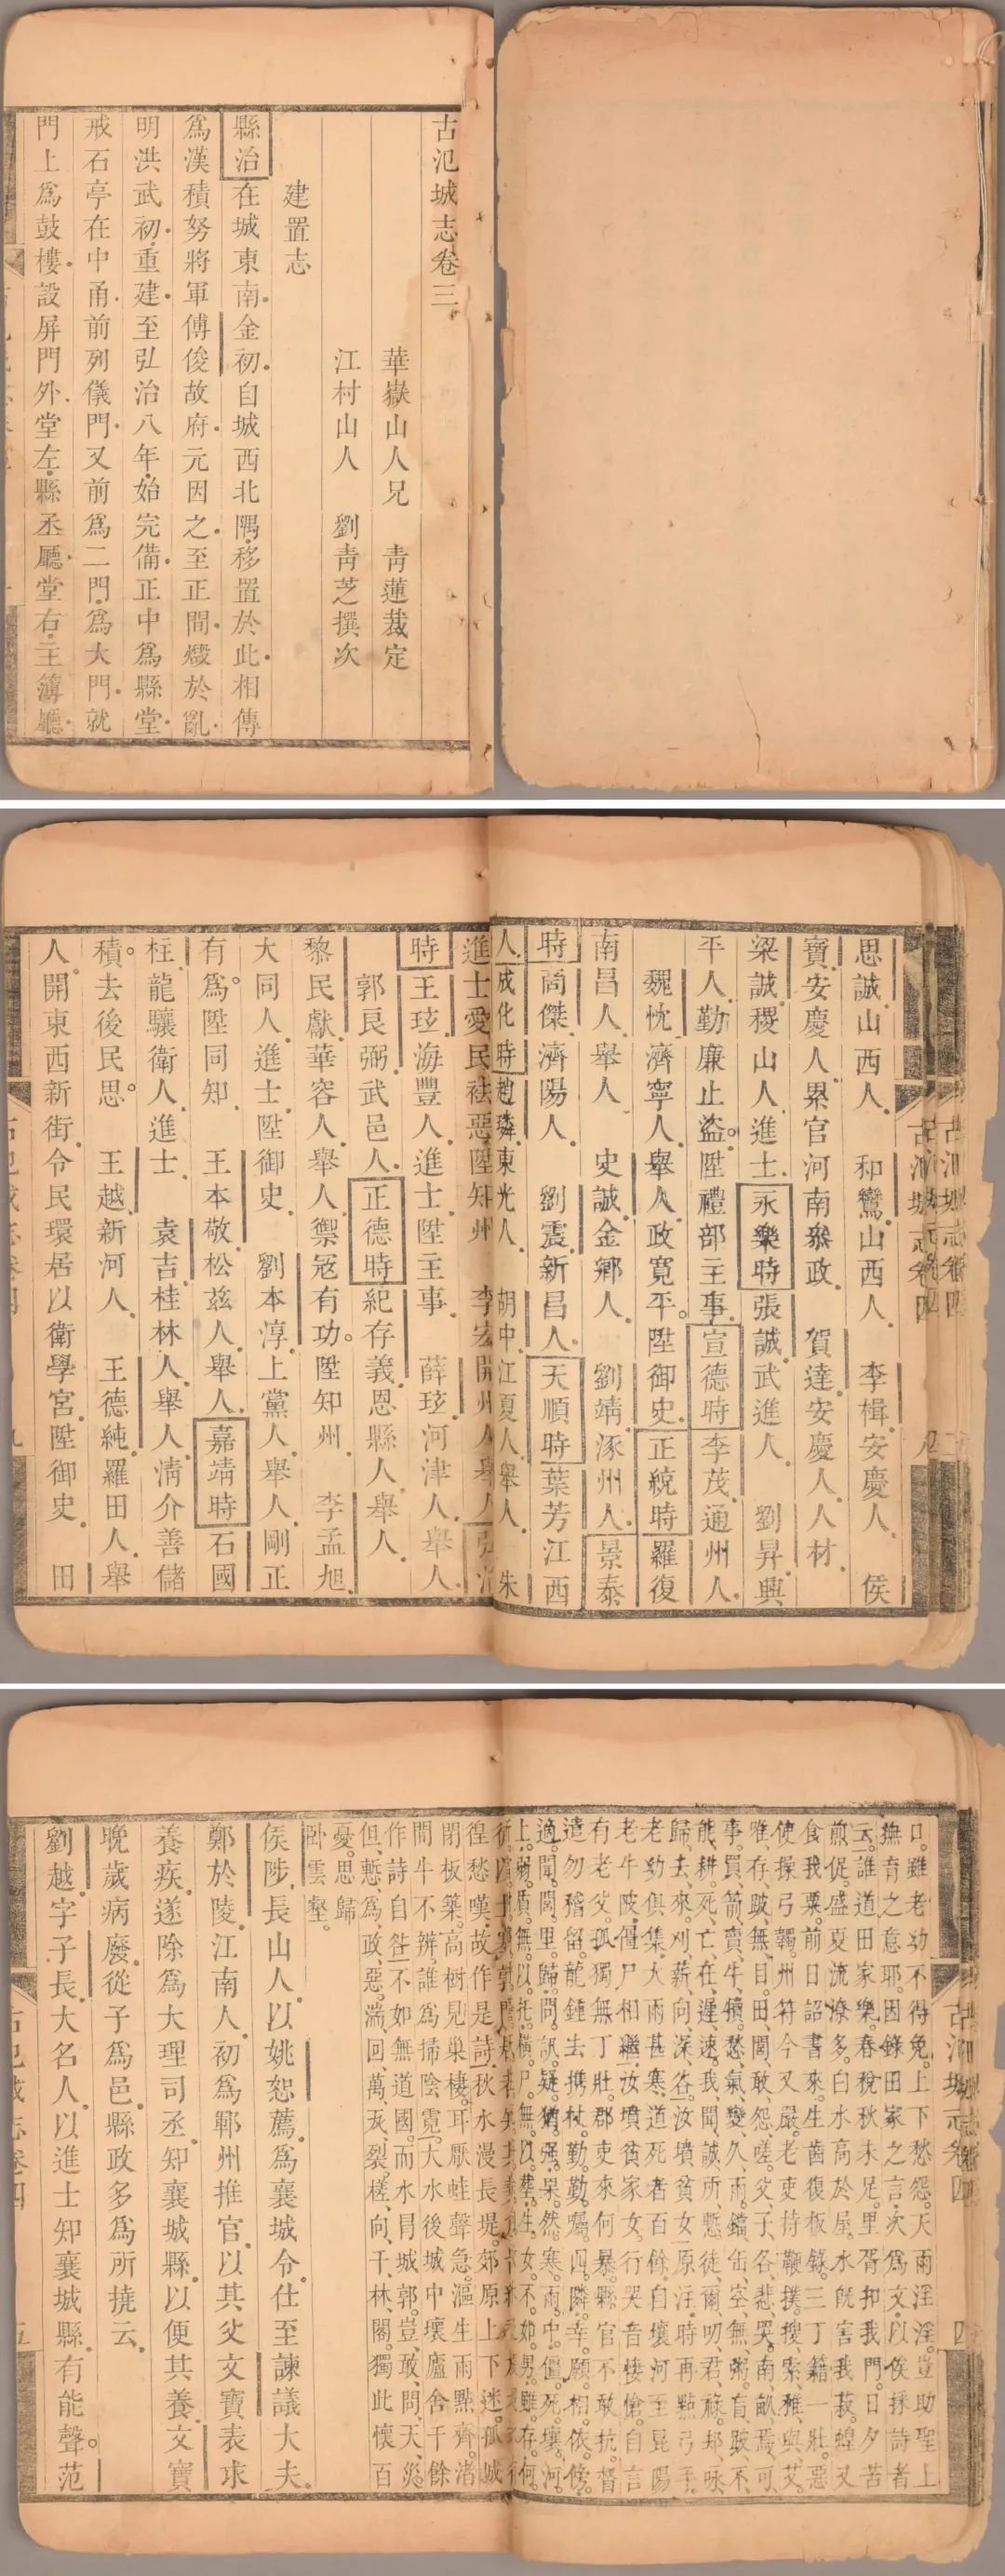 古汜城志卷三
華嶽山人兄 青蓮裁定
江村山人 劉青芝撰次
建置志
縣治在城東南金初自城西北隅移置於此相傳
為漢積弩將軍傅俊故府元因之至正間燬於亂
明洪武初重建至弘治八年始完備正中為縣堂
戒石亭在中甬前列儀門又前為二門為大門就
門上為鼓樓設屏門外堂左縣丞廳堂右主簿廳
思誠山西人 和鸞山西人 李楫安慶人 侯
寶安慶人累官河南叅政 賀達安慶人人材
梁誠稷山人進士永樂時張誠武進人 劉昇興
平人勤廉止盜陞禮部主事宣德時李茂通州人
魏忱濟寧人舉人政寛平陞御史正統時羅復
南昌人舉人 史誠金鄉人 劉靖涿州人景泰
時尚傑濟陽人 劉震新昌人天順時葉芳江西
人成化時趙璘東光人 胡中江夏人舉人 朱
進士愛民祛惡陞知州 李宏開州人舉人弘治
時王玹海豐人進士陞主事 薛玹河津人舉人
郭良弼武邑人正德時紀存義恩縣人舉人
黎民獻華容人舉人禦寇有功陞知州 李孟旭
大同人進士陞御史 劉本淳上黨人舉人剛正
有為陞同知 王本敬松茲人舉人嘉靖時石國
柱龍驤衛人進士 袁吉桂林人舉人清介善儲
積去後民思 王越新河人 王德純羅田人舉
人開東西新街令民環居以衛學宮陞御史 田
口雖老幼不得免上下愁怨天雨淫淫豈助聖上
撫育之意耶因錄田家之言次為文以俟採詩者
云誰道田家樂春稅秋未足里胥扣我門日夕苦
煎促盛夏流潦多白水高於屋水既害我菽蝗又
食我粟前日詔書來生齒復板錄三丁籍一壯惡
使操弓韣州符今又嚴老吏持鞭撲搜索稚與艾
唯存跛無目田閭敢怨嗟父子各悲哭南畝焉可
事買箭賣牛犢愁氣變久雨鐺缶空無粥盲跛不
能耕死亡在遲速我聞誠所慙徒爾叨君祿却咏
歸去來刈薪向深谷汝墳貧女原注時再點弓手
老幼俱集大雨甚寒道死者百餘自壤河至昆陽
老牛陂僵尸相繼汝墳貧家女行哭音悽愴自言
有老父孤獨無丁壯郡吏來何暴縣官不敢抗督
遣勿稽留龍鍾去携杖勤勤囑四隣幸願相依傍
適聞閭里歸問訊疑猶强果然寒雨中僵死壤河
上弱質無以托橫尸無以葬生女不如男雖存何
惶愁嘆故作是詩秋水漫長堤郊原上下迷孤城
閉板築高樹見巢棲耳厭蛙聲急漚生雨點齊渚
間牛不辨誰為掃陰霓大水後城中壞廬舍千餘
作詩自咎不如無道國而水冐城郭豈敢問天災
但慙為政惡湍回萬瓦裂槎向千林閣獨此懷百
憂思歸
卧雲壑
侯陟長山人以姚恕薦為襄城令仕至諫議大夫
鄭於陵江南人初為鄆州推官以其父文寶表求
養疾遂除為大理司丞知襄城縣以便其養文寶
晚歲病廢從子為邑縣政多為所撓云
劉越字子長大名人以進士知襄城縣有能聲范